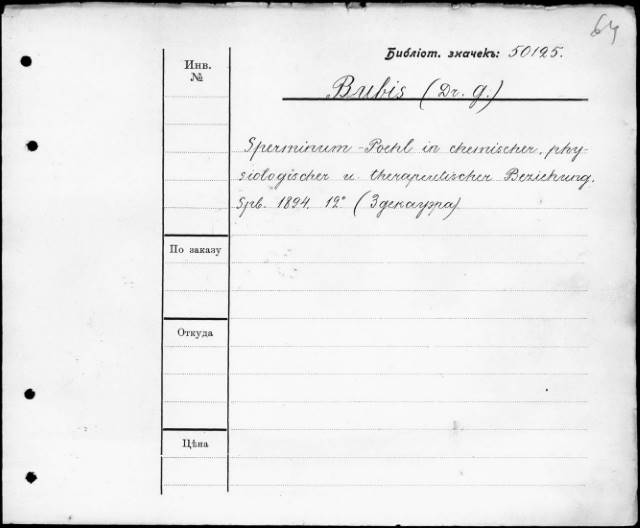 64
Библіот. значекъ: 50125.
Инв.
№
Bubis (Dr. G.)
Sperminum-Poehl in chemischer, phy-
siologischer u. therapeutischer Beziehung.
Spb. 1894. 12° (Здекауэра)
По заказу
Откуда
Цѣна